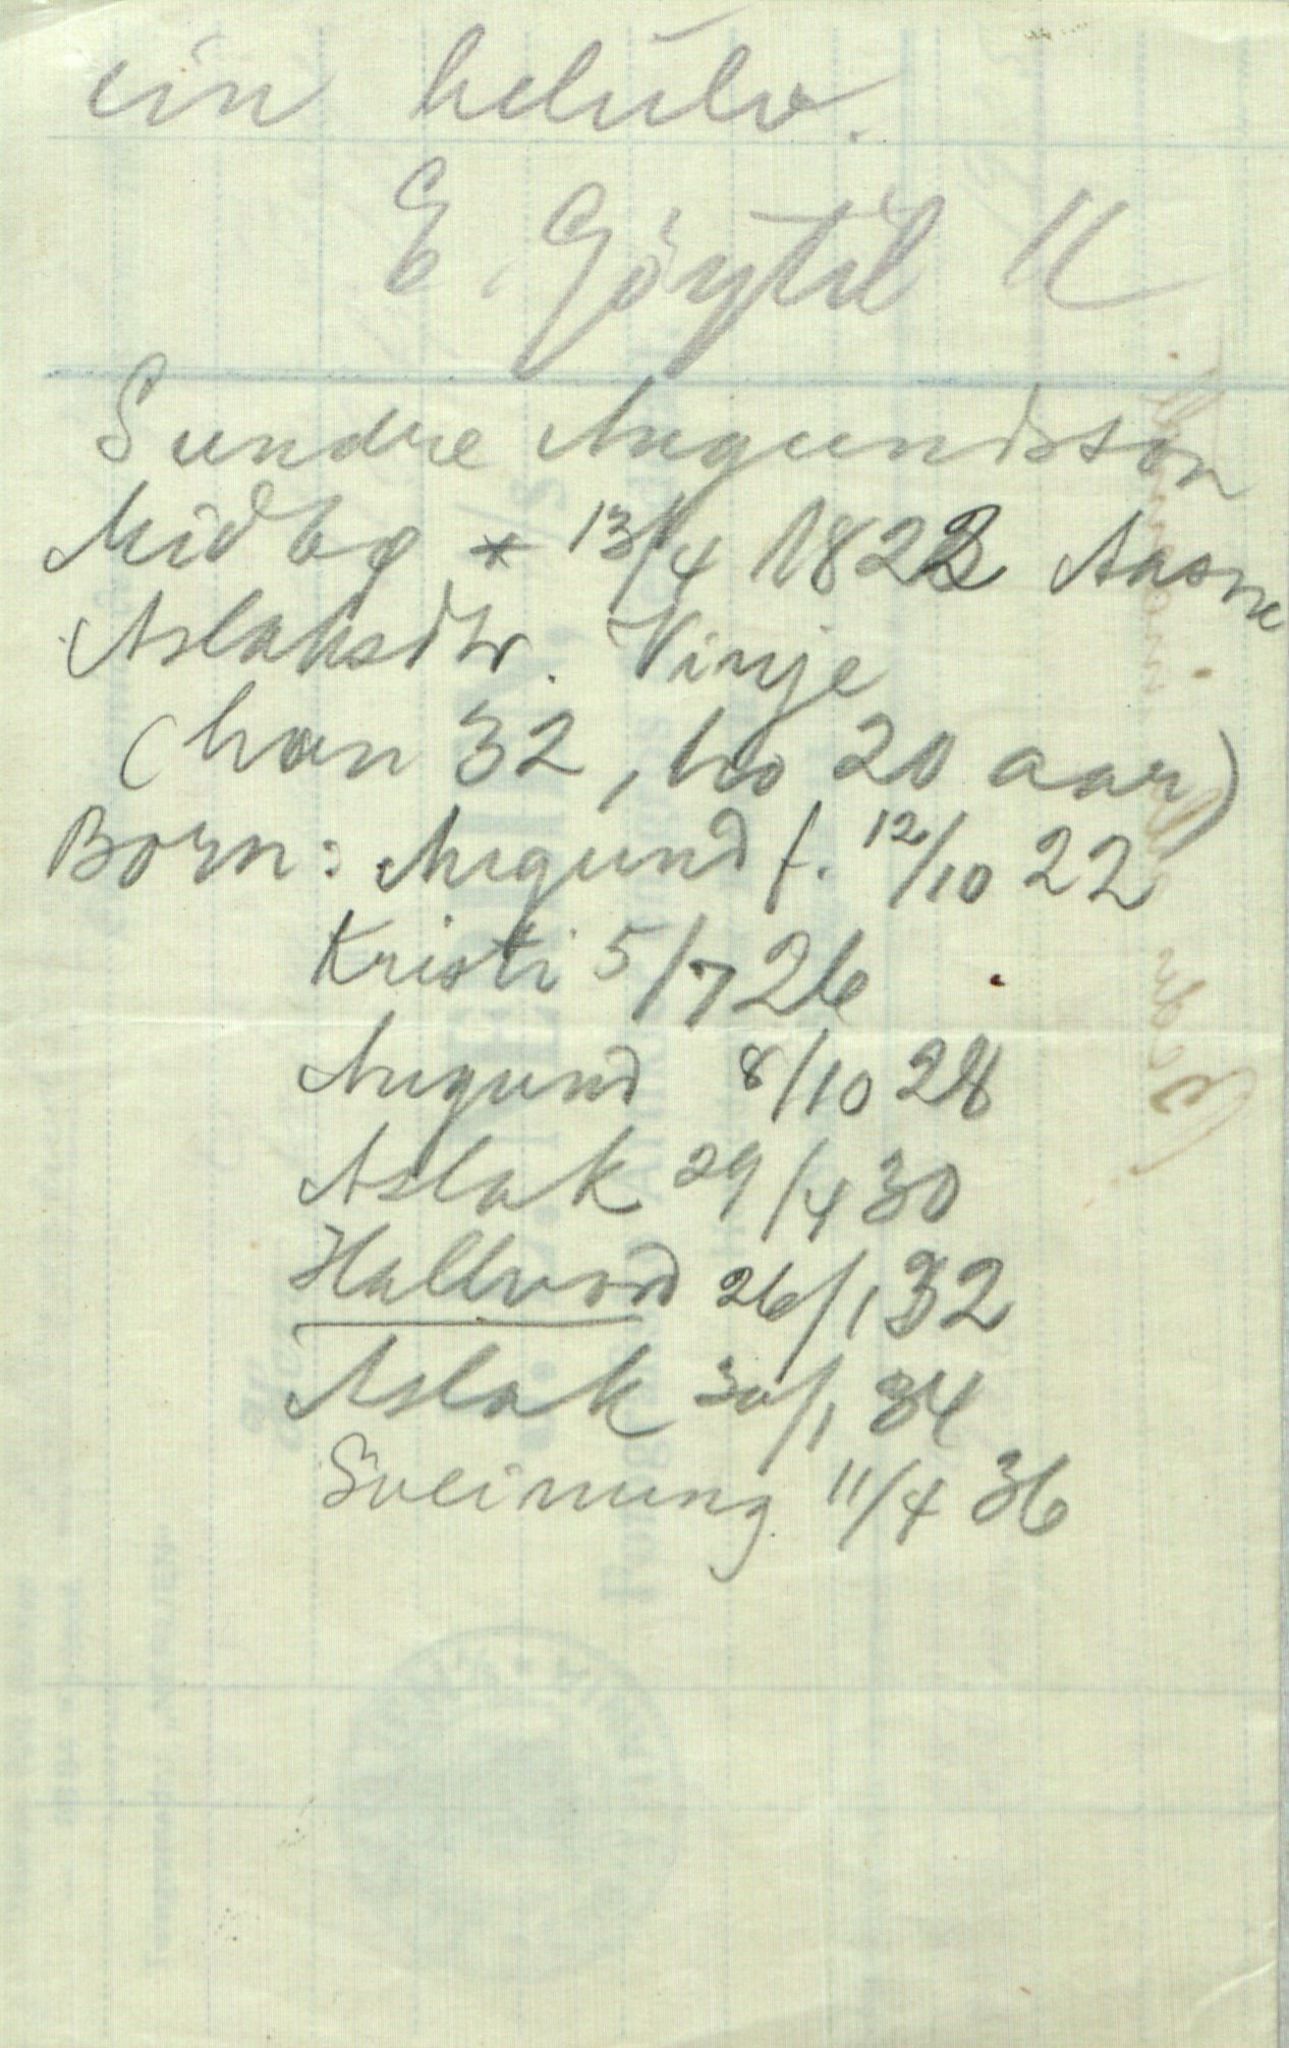 ein helulv.
E. Göytil K
Sundre Augundson
Midbø * 13/4 1822 Aasne
Aslaksdtr. Vinje
(han 32, ho 20 aar)
Born: Augund f. 12/10 22
Kristi 5/7 26
Augund 8/10 28
Aslak 29/4 30
Hallvord 26/1 32
Aslak 30/1 34
Sveinung 11/4 36